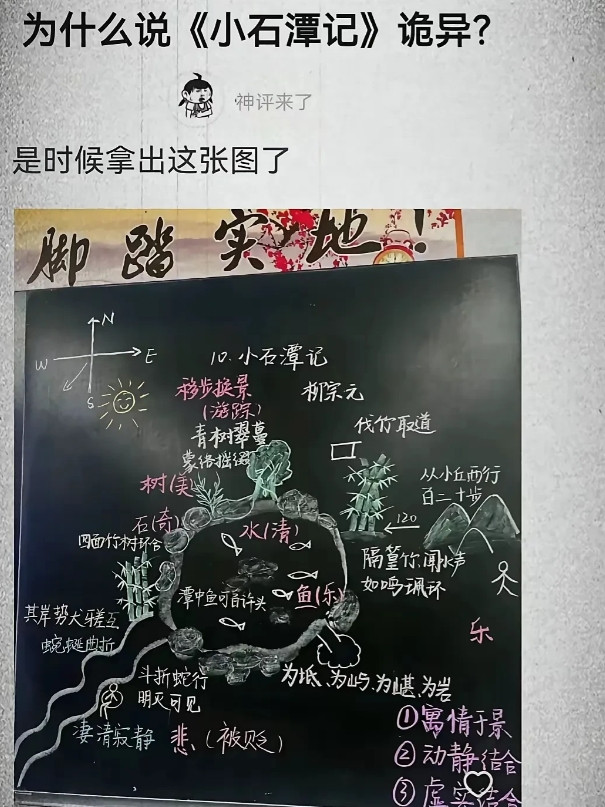 为什么说《小石潭记》诡异？
神评来了
是时候拿出这张图了
脚踏实地！
N
W
E
S
10.小石潭记
移步换景
(游踪)
柳宗元
青树翠蔓
蒙络摇缀
伐竹取道
树(美)
从小丘西行
百二十步
120
石(奇)
水(清)
四面竹树环合
隔篁竹闻水声
如鸣珮环
潭中鱼可百许头
鱼(乐)
其岸势犬牙差互
蜿蜒曲折
乐
斗折蛇行
明灭可见
为坻、为屿、为嵁、为岩
凄清寂静
悲、(被贬)
①寓情于景
②动静结合
③虚实结合